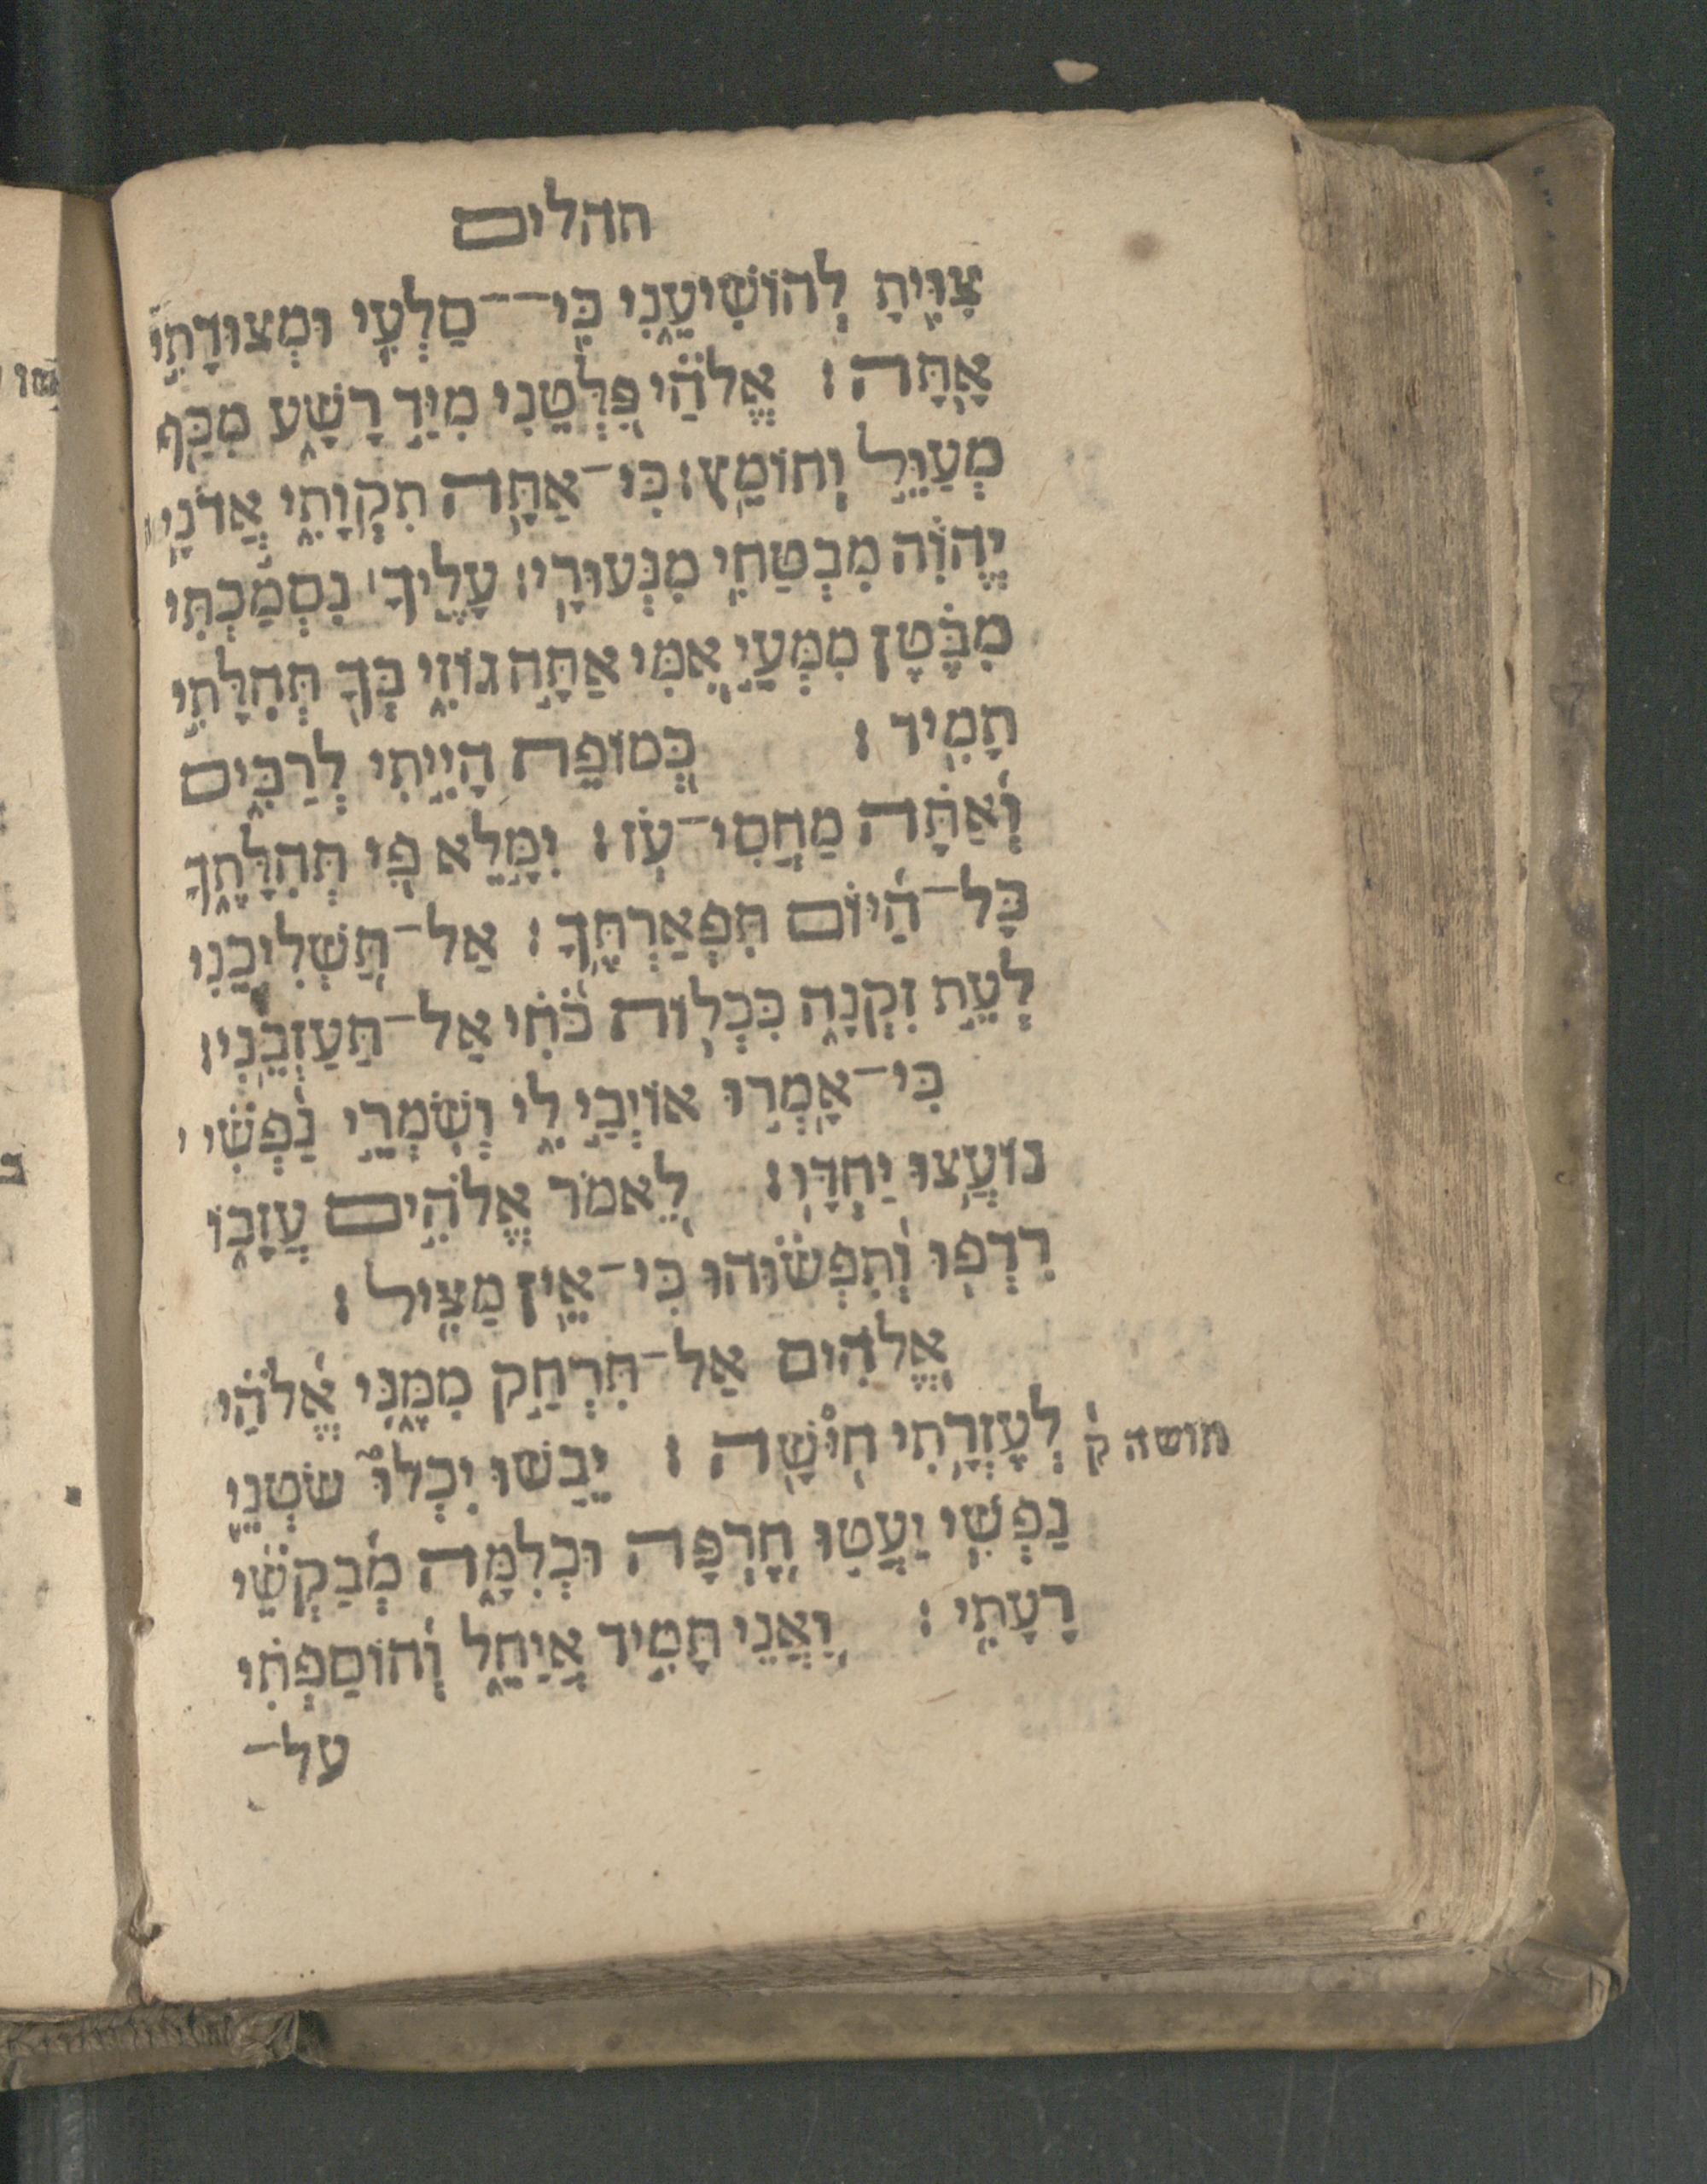 תהלים
צִוִּיתָ לְהוֹשִׁיעֵנִי כִּי־־סַלְעִי וּמְצוּדָתִי
אָתָּה׃ אֱלֹהַי פַּלְּטֵנִי מִיַּד רָשָׁע מִכַּף
מְעַוֵּל וְחוֹמֵץ׃ כִּי־אַתָּה תִקְוָתִי אֲדֹנָי
יֱהֹוִה מִבְטַחִי מִנְּעוּרָי׃ עָלֶיךָ׀ נִסְמַכְתִּי
מִבֶּטֶן מִמְּעֵי אִמִּי אַתָּה גוֹזִי בְּךָ תְהִלָּתִי
תָמִיד׃ כְּמוֹפֵת הָיִיתִי לְרַבִּים
וְאַתָּה מַחֲסִי־עֹז׃ יִמָּלֵא פִי תְּהִלָּתֶךָ
כָּל־הַיּוֹם תִּפְאַרְתֶּךָ׃ אַל־תַּשְׁלִיכֵנִי
לְעֵת זִקְנָה כִּכְלוֹת כֹּחִי אַל־תַּעַזְבֵנִי׃
כִּי־אָמְרוּ אוֹיְבַי לִי וְשֹׁמְרֵי נַפְשִׁי
נוֹעֲצוּ יַחְדָּו׃ לֵאמֹר אֱלֹהִים עֲזָבוֹ
רִדְפוּ וְתִפְשׂוּהוּ כִּי־אֵין מַצִּיל׃
אֱלֹהִים אַל־תִּרְחַק מִמֶּנִּי אֱלֹהַי
לְעֶזְרָתִי חִישָׁה׃ יֵבֹשׁוּ יִכְלוּ שֹׂטְנֵי
חושה ק
נַפְשִׁי יַעֲטוּ חֶרְפָּה וּכְלִמָּה מְבַקְשֵׁי
רָעָתִי׃ וַאֲנִי תָּמִיד אֲיַחֵל וְהוֹסַפְתִּי
על־